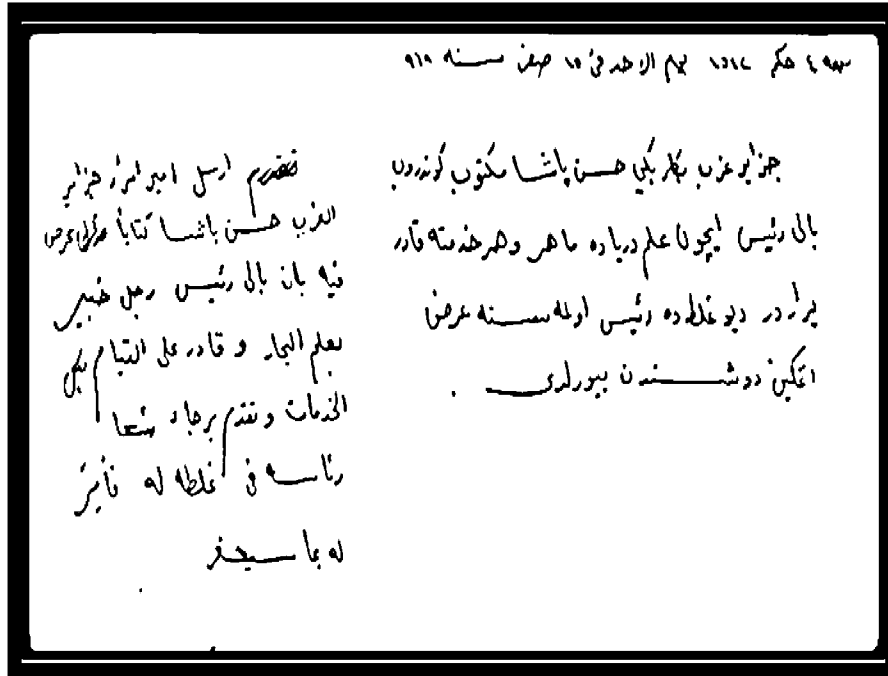 حكم ١٥١٧ يوم الاحد فى ١٥ صفر سنه
جزاير غرب بكلربكي حسن پاشا مكتوب كوندروب
بالى رئيس ايچون علم درياده ماهر وهر خدمته قادر
يرار در ديو غلطه ده رئيس اولمه سنه عرض
اتمكين دوشندن بيورلدى .
ارسل امير امراء جزاير
الغرب حسن باشا كتاباً عرض
فيه بان بالى رئيس رجل خبير
بعلم البحار و قادر على القيام بكل
الخدمات و تقدم برجاء
رئاسه فى غلطه له
له بما سيحضر